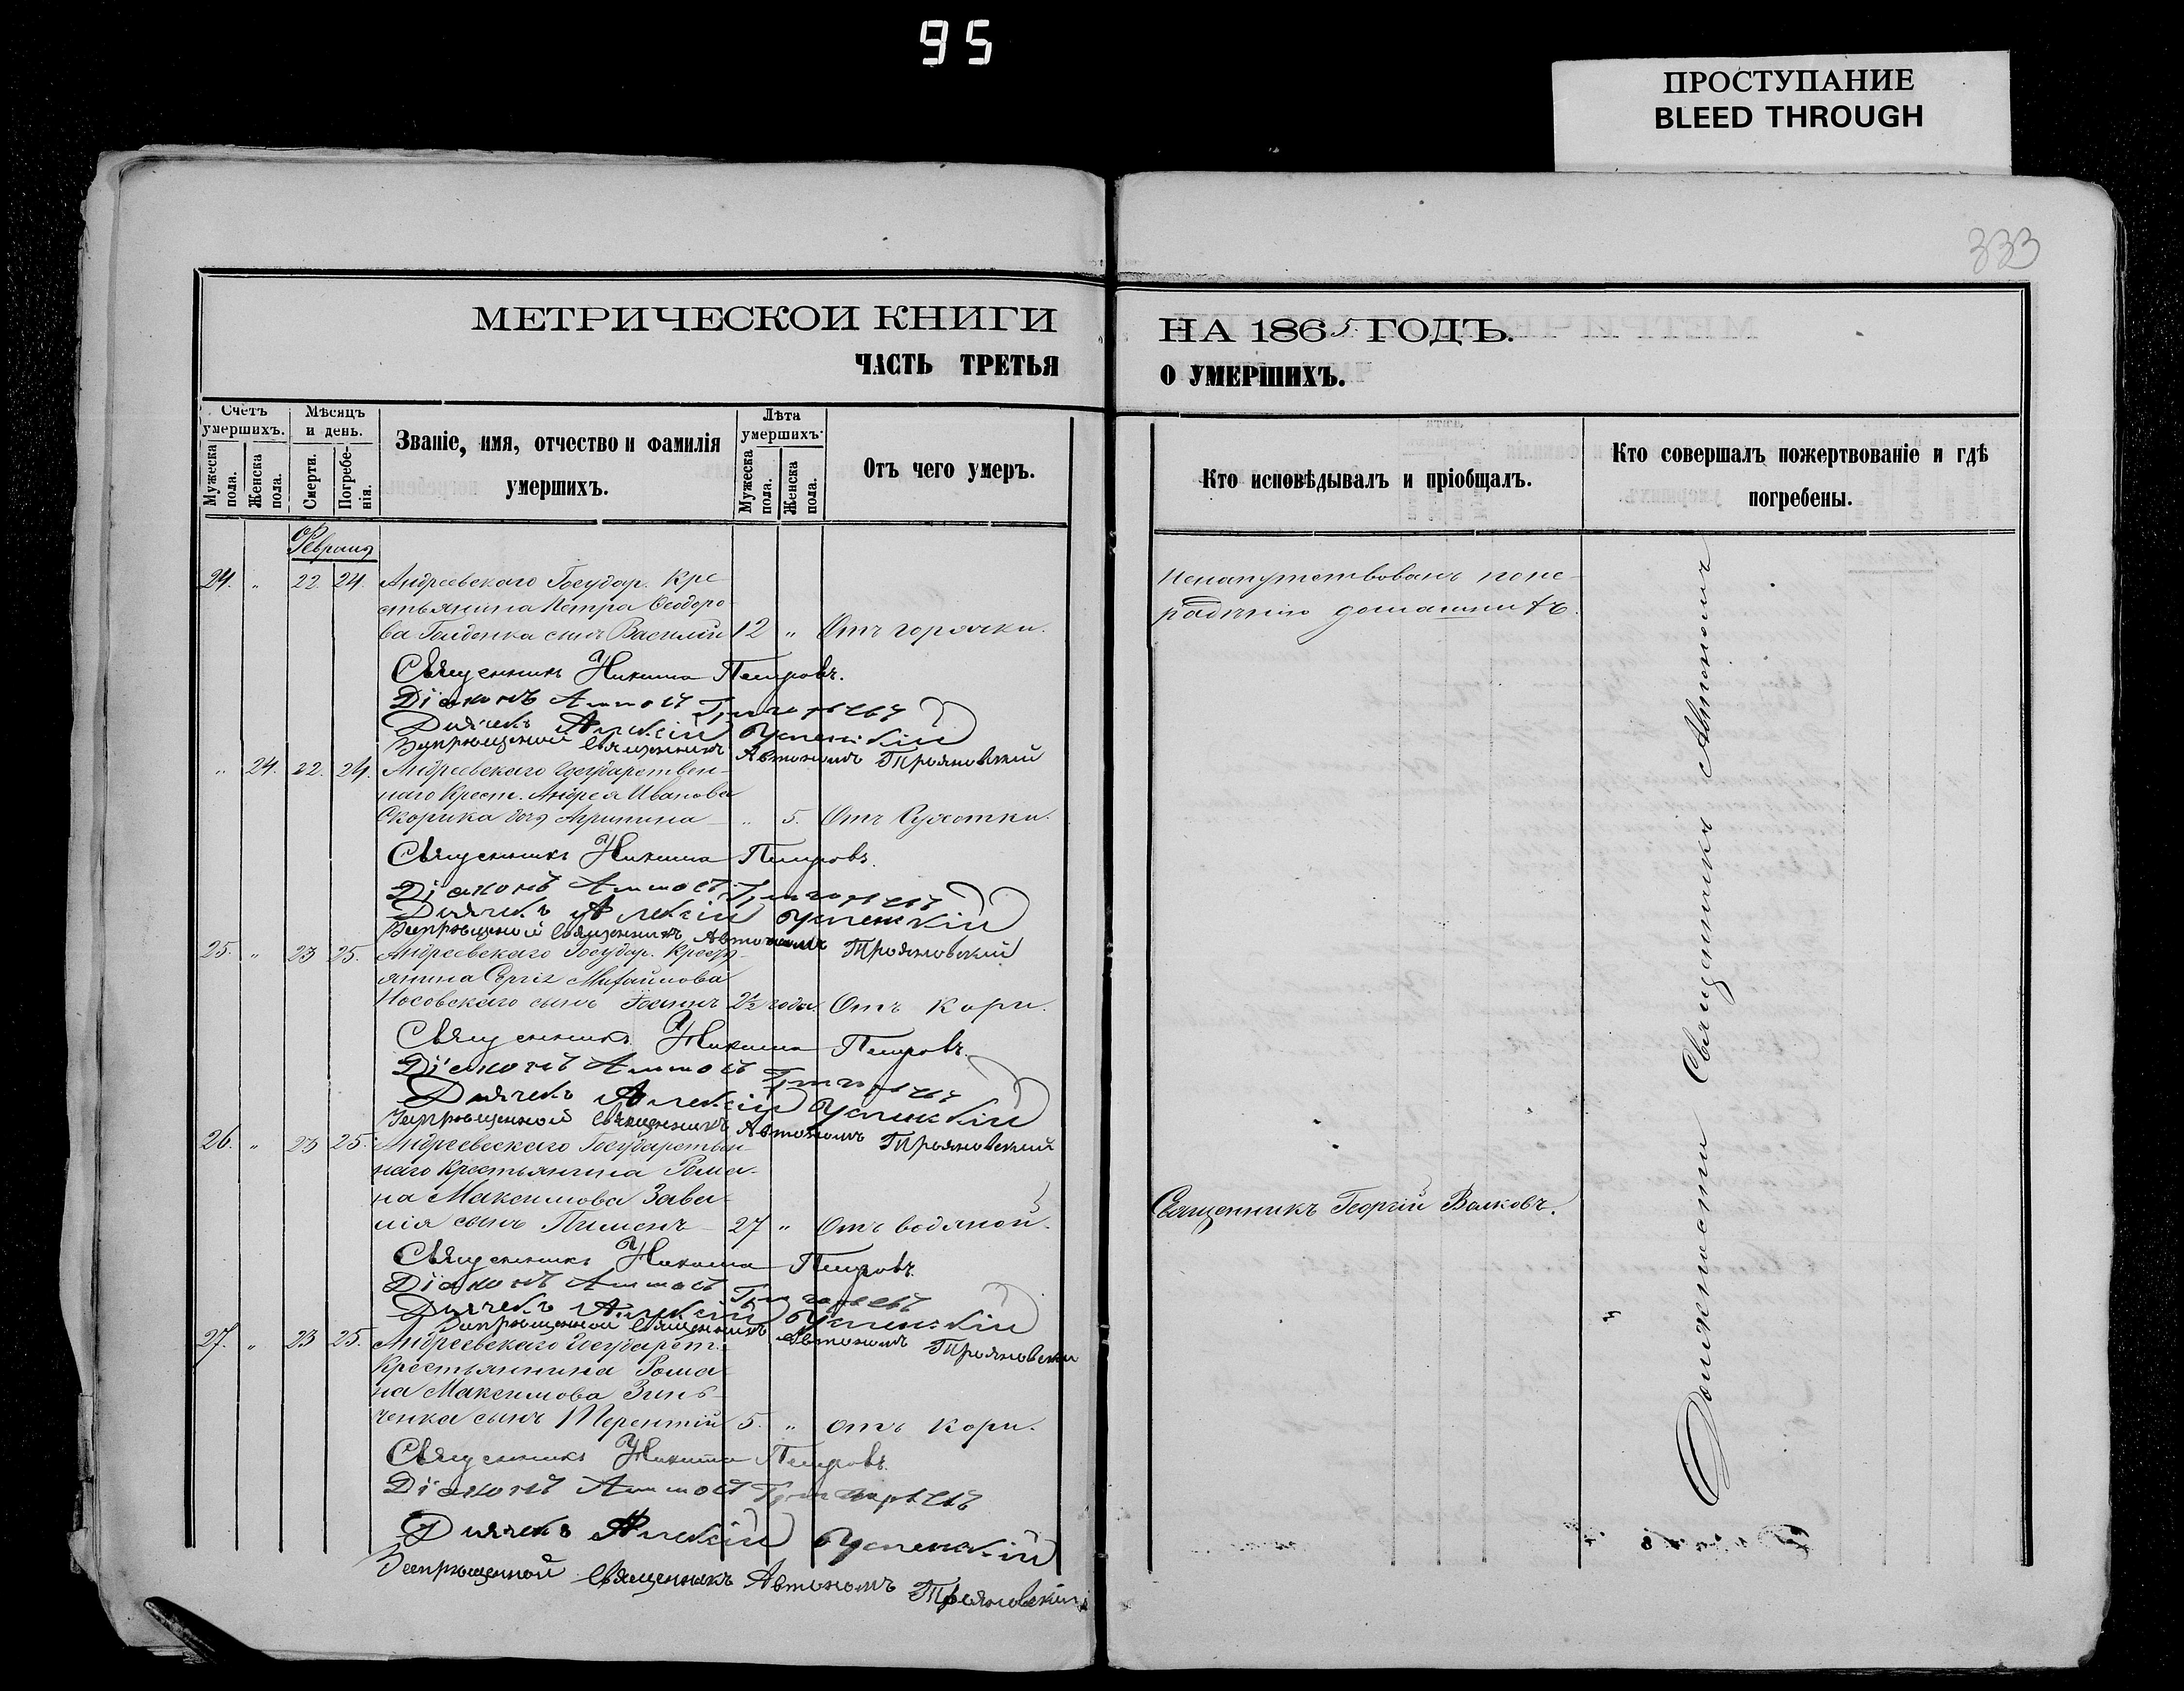 95
ПРОСТУПАНИЕ
BLEED THROUGH
333
МЕТРИЧЕСКОЙ КНИГИ
ЧАСТЬ ТРЕТЬЯ
НА 1865 ГОДЪ.
О УМЕРШИХЪ.
Счетъ умершихъ.
Мужеска пола.
Женска пола.
Мѣсяцъ и день.
Смерти.
Погребенія.
Званіе, имя, отчество и фамилія
умершихъ.
Лѣта умершихъ.
Мужеска пола.
Женска пола.
Отъ чего умеръ.
Кто исповѣдывалъ и пріобщалъ.
Кто совершалъ пожертвованіе и гдѣ
погребены.
Февраля
24. " 22. 24. Андреевскаго Государ. Кре-
стьянина Петра Ѳеодоро-
ва сынъ Василій 12 " Отъ горячки.
Священникъ Никита Петровъ.
Діаконъ Григорьевъ
Дьячекъ Алексій Успенскій
Запрещенной Священникъ Автономъ Трояновскій
" 24. 22. 24. Андреевскаго Государствен-
наго Крест. Андрея Иванова
Скорика дочь Агрипина " 5. Отъ Сухотки.
Священникъ Никита Петровъ.
Діаконъ Григорьевъ
Дьячекъ Алексій Успенскій
Запрещенной Священникъ Автономъ Трояновскій
25. " 23 25. Андреевскаго Государ. Кресть-
янина Сергія Михайлова
Носовскаго сынъ Іоаннъ 2½ года. Отъ Кори.
Священникъ Никита Петровъ.
Діаконъ Григорьевъ
Дьячекъ Алексій Успенскій
Запрещенной Священникъ Автономъ Трояновскій
26. " 23 25. Андреевскаго Государствен-
наго Крестьянина Рома-
на Максимова
сынъ Пименъ 27 " Отъ водяной.
Священникъ Никита Петровъ.
Діаконъ Григорьевъ
Дьячекъ Алексій Успенскій
Запрещенной Священникъ Автономъ Трояновскій
27. " 23 25. Андреевскаго Государст.
Крестьянина Рома-
на Максимова Зинь-
ченка сынъ Терентій 5. " отъ Кори.
Священникъ Никита Петровъ.
Діаконъ Григорьевъ
Дьячекъ Алексій Успенскій
Запрещенной Священникъ Автономъ Трояновскій
Ненапутствованъ по не-
радѣнію домашнихъ.
Священникъ Георгій Волковъ.
Священникъ Автономъ